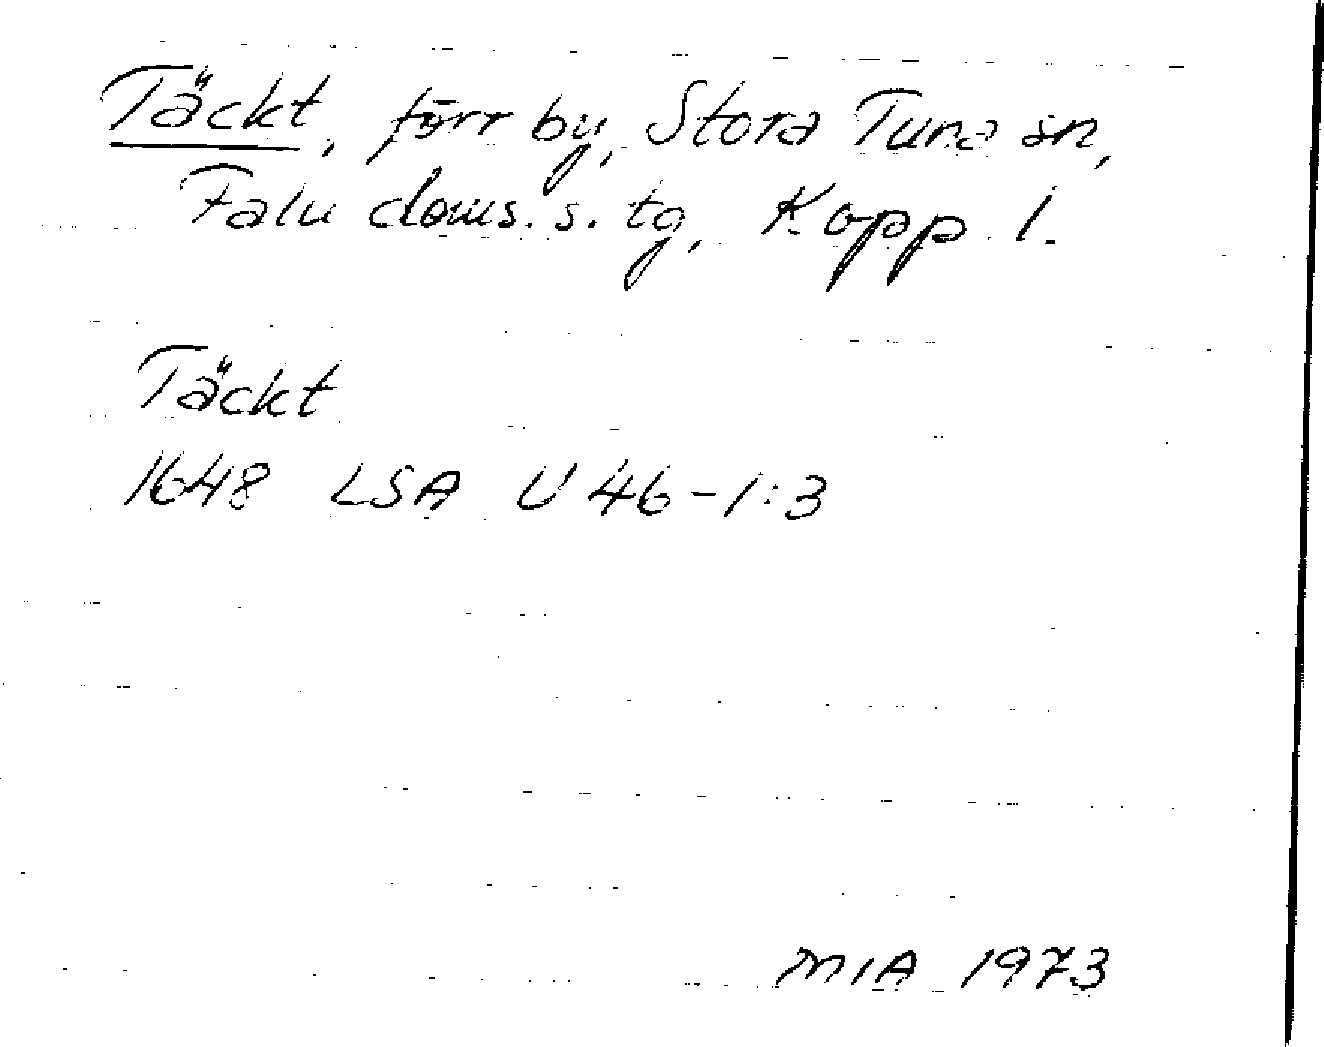 Täckt, förr by, Stora Tuna sn,
Falu doms.s. tg, Kopp. l.
Täckt
1648 LSA U 46-1:3
MIA 1973